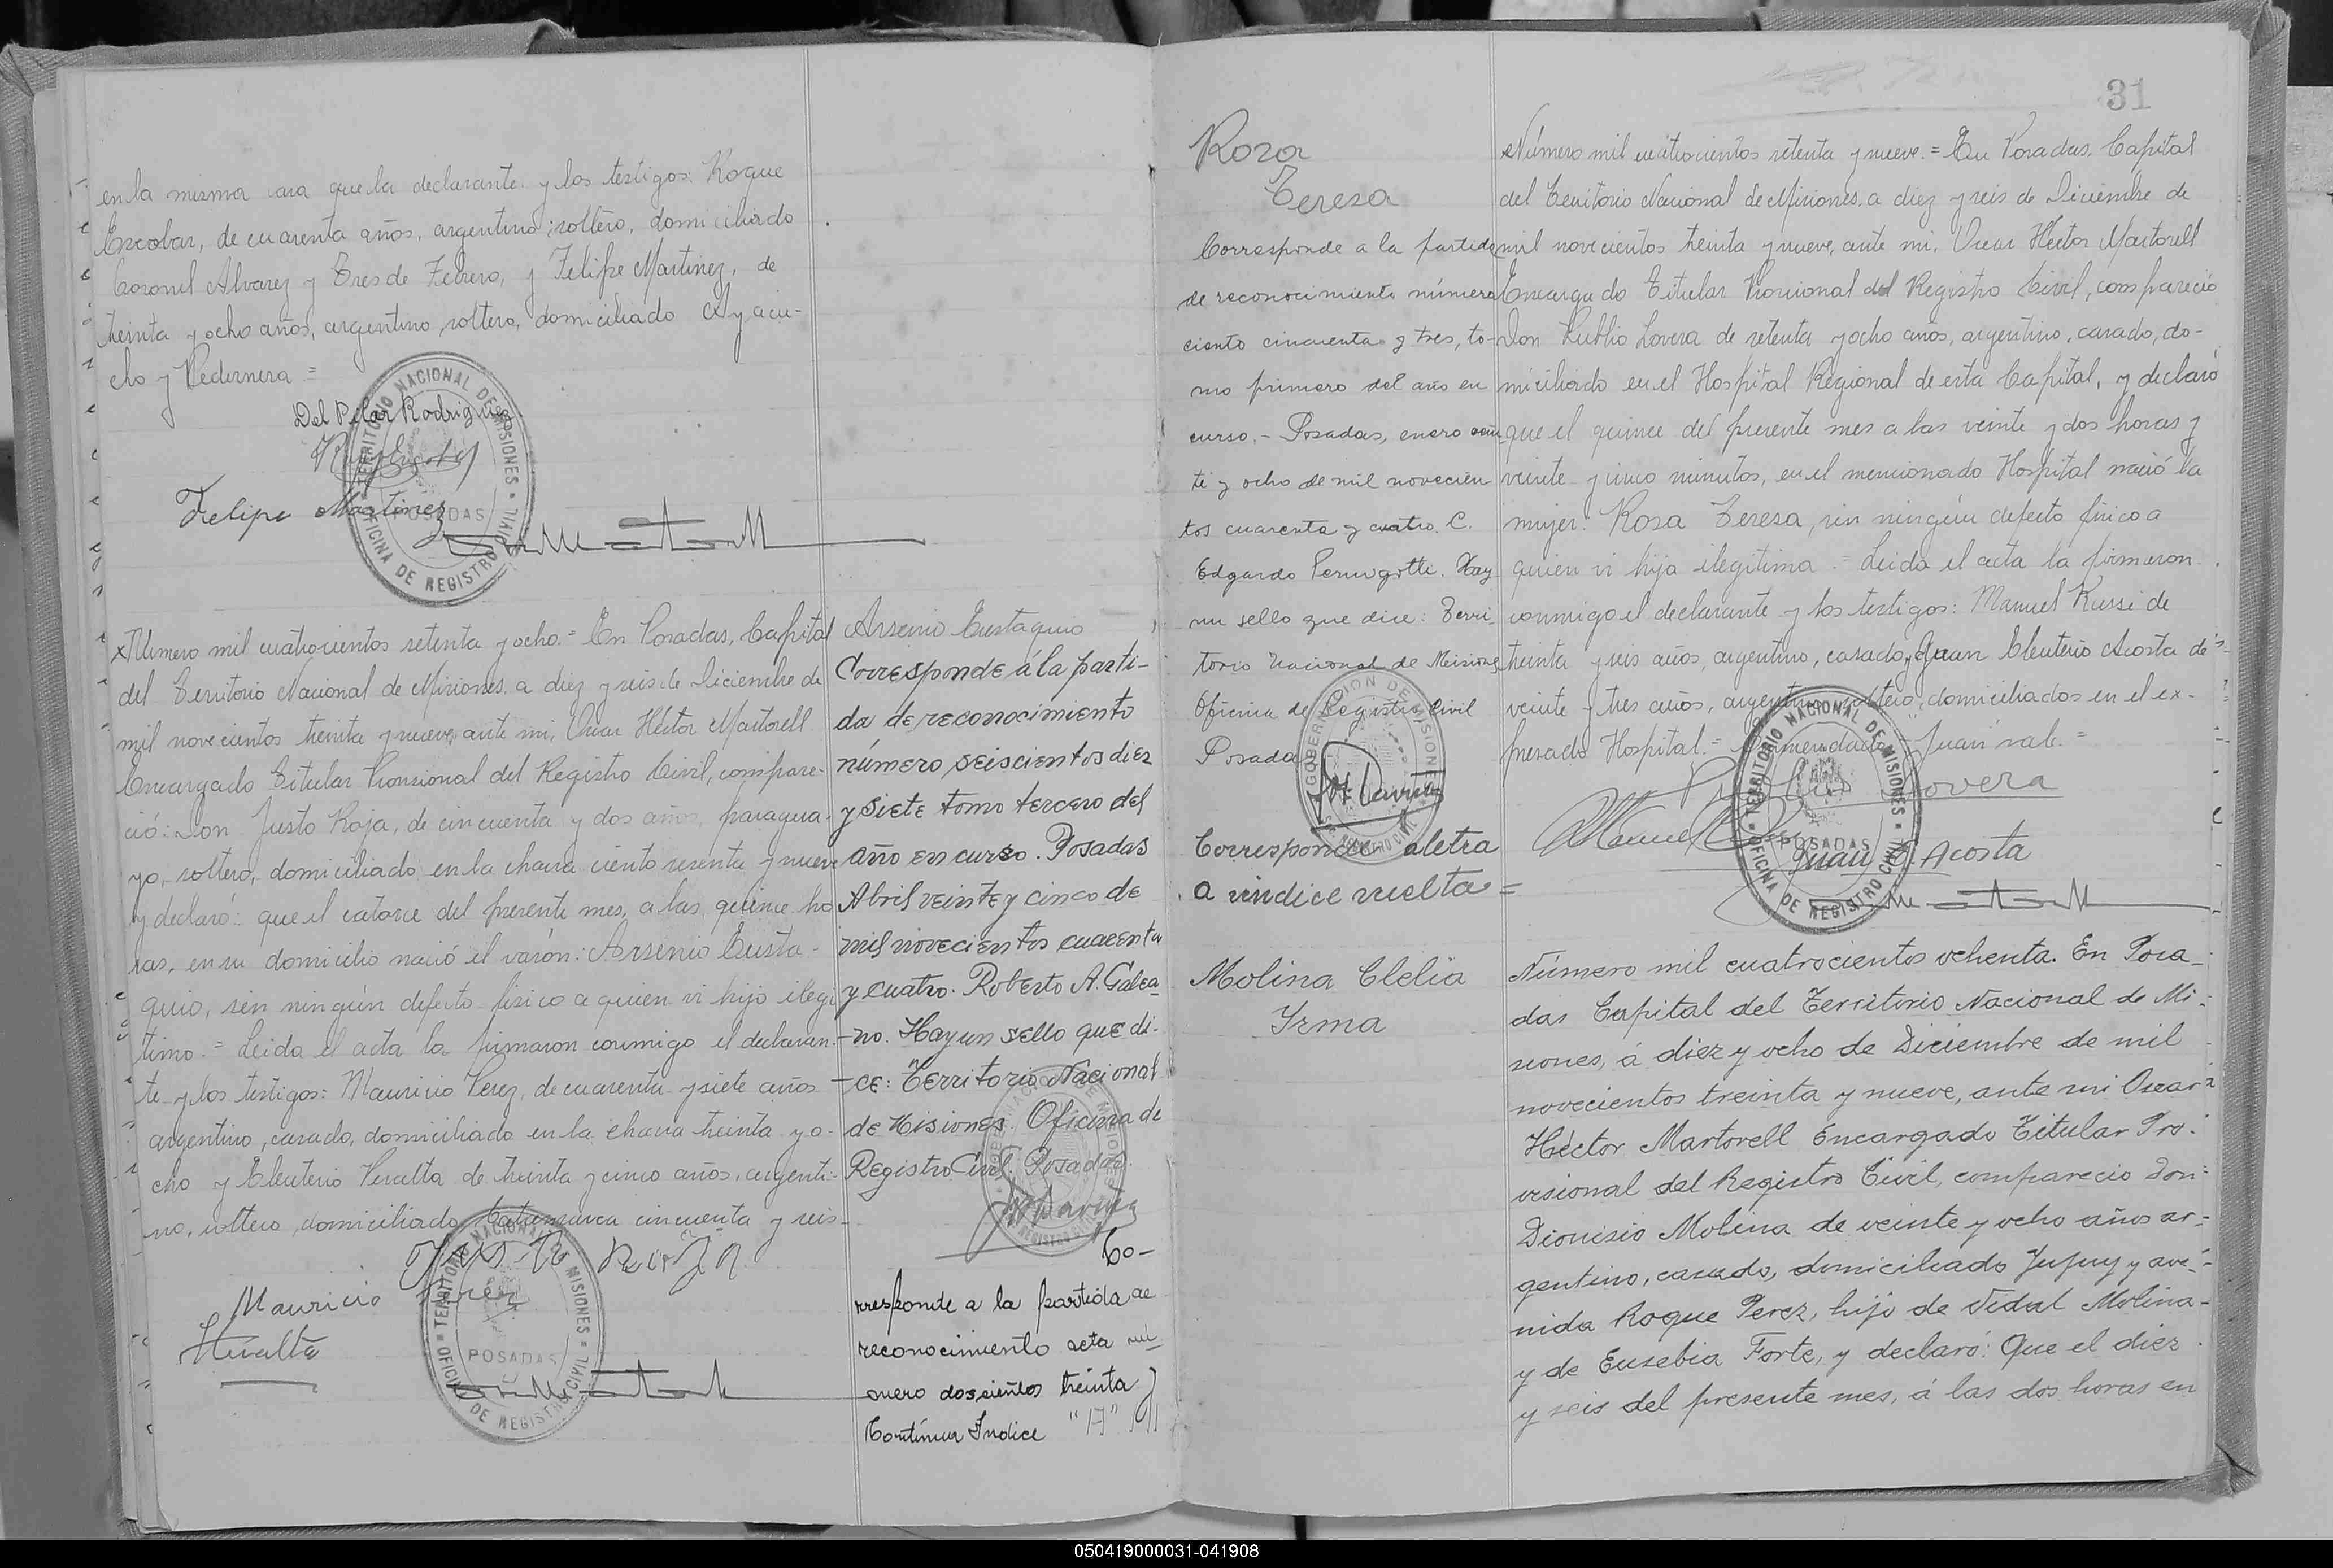 en la misma casa que la declarante y los testigos: Roque
Escobar, de cuarenta años, argentino, soltero, domiciliado
Coronel Alvarez y Tres de Febrero, y Felipe Martinez, de
treinta y ocho años, argentino, soltero, domiciliado Ayacu-
cho y Pedernera =
Del Pilar Rodriguez
Felipe Martinez
TERRITORIO NACIONAL DE MISIONES
POSADAS
OFICINA DE REGISTRO CIVIL
x Número mil cuatrocientos setenta y ocho. = En Posadas, Capital
del Territorio Nacional de Misiones, a diez y seis de Diciembre de
mil novecientos treinta y nueve, ante mi, Oscar Héctor Martorell
Encargado Titular Provisional del Registro Civil, compare-
ció: Don Justo Roja, de cincuenta y dos años, paragua-
yo, soltero, domiciliado en la chacra ciento sesenta y nueve
y declaró: que el catorce del presente mes, a las quince ho
ras, en su domicilio nació el varón: Arsenio Eusta-
quio, sin ningún defecto físico a quien vi hijo ilegi
timo. = Leida el acta la firmaron conmigo el declaran-
te y los testigos: Mauricio Perez, de cuarenta y siete años
argentino, casado, domiciliado en la chacra treinta y o-
cho y Eleuterio Peralta de treinta y cinco años, argenti-
no, soltero, domiciliado Catamarca cincuenta y seis-
Justo Roja
Mauricio Perez
Peralta
TERRITORIO NACIONAL DE MISIONES
POSADAS
OFICINA DE REGISTRO CIVIL
Arsenio Eustaquio
Corresponde á la parti-
da de reconocimiento
número seiscientos diez
y siete tomo tercero del
año en curso. Posadas
Abril veinte y cinco de
mil novecientos cuarenta
y cuatro. Roberto A. Galea-
-no. Hay un sello que di-
-ce: Territorio Nacional
de Misiones. Oficina de
Registro Civil. Posadas.
Co-
rresponde a la partida de
reconocimiento acta nú-
mero doscientos treinta y
Continua Indice "A"
31
Rosa
Teresa
Corresponde a la partida
de reconocimiento número
ciento cincuenta y tres, to-
mo primero del año en
curso.- Posadas, enero vein
ti y ocho de mil novecien
tos cuarenta y cuatro. C.
Edgardo Perugotti. Hay
un sello que dice: Terri-
torio Nacional de Misiones
Oficina de Registro Civil
Posadas
GOBERNACION DE MISIONES
REGISTRO CIVIL
Corresponde aletra
a vindice vuelta =
Número mil cuatrocientos setenta y nueve. = En Posadas, Capital
del Territorio Nacional de Misiones, a diez y seis de Diciembre de
mil novecientos treinta y nueve, ante mi, Oscar Héctor Martorell
Encargado Titular Provisional del Registro Civil, compareció
Don Publio Lovera de setenta y ocho años, argentino, casado, do-
miciliado en el Hospital Regional de esta Capital, y declaró
que el quince del presente mes a las veinte y dos horas y
veinte y cinco minutos, en el mencionado Hospital nació la
mujer: Rosa Teresa, sin ningún defecto físico a
quien vi hija ilegítima = Leida el acta la firmaron
conmigo el declarante y los testigos: Manuel Russi de
treinta y seis años, argentino, casado, y Juan Eleuterio Acosta de
veinte y tres años, argentino, soltero, domiciliados en el ex-
presado Hospital. = Enmendado "Juan" vale. =
Publio Lovera
Manuel
Juan E. Acosta
TERRITORIO NACIONAL DE MISIONES
POSADAS
OFICINA DE REGISTRO CIVIL
Molina Clelia
Irma
Número mil cuatrocientos ochenta. En Posa-
das Capital del Territorio Nacional de Mi-
siones, á diez y ocho de Diciembre de mil
novecientos treinta y nueve, ante mi Oscar
Héctor Martorell Encargado Titular Pro-
visional del Registro Civil, compareció Don
Dionisio Molina de veinte y ocho años ar-
gentino, casado, domiciliado Jujuy y ave-
nida Roque Perez, hijo de Vidal Molina
y de Eusebia Forte, y declaró: Que el diez
y seis del presente mes, á las dos horas en
050419000031-041908